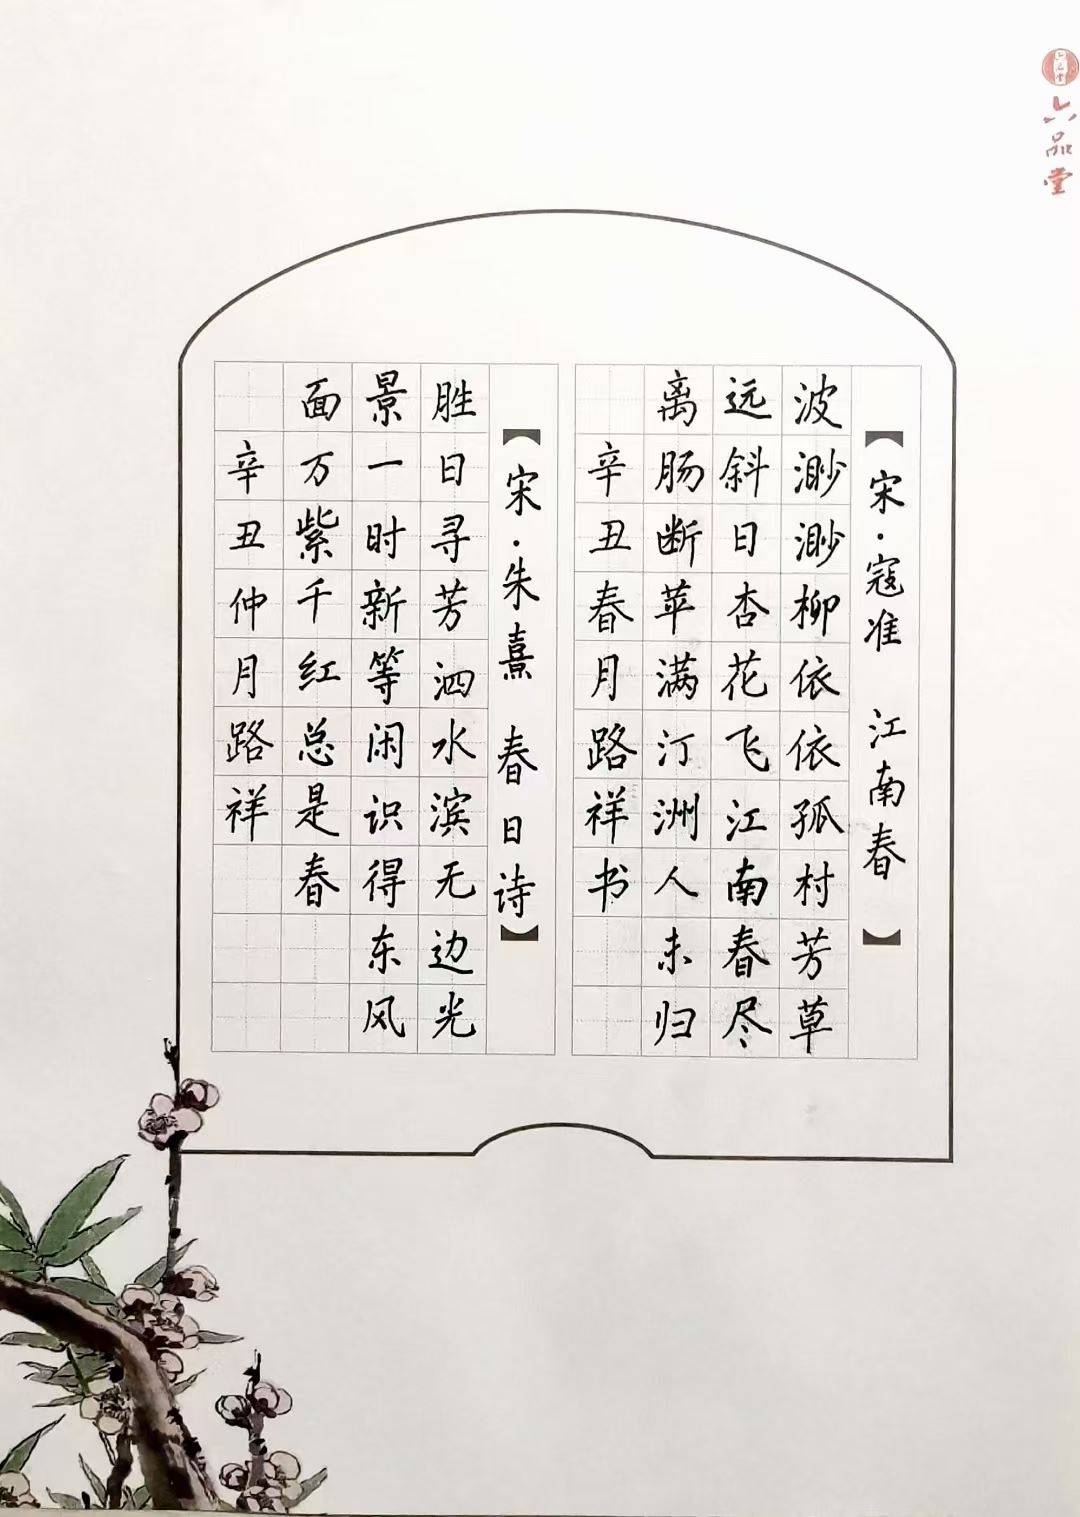 六品堂
【宋·寇准 江南春】
波渺渺柳依依孤村芳草
远斜日杏花飞江南春尽
离肠断苹满汀洲人未归
辛丑春月路祥书
【宋·朱熹 春日诗】
胜日寻芳泗水滨无边光
景一时新等闲识得东风
面万紫千红总是春
辛丑仲月路祥